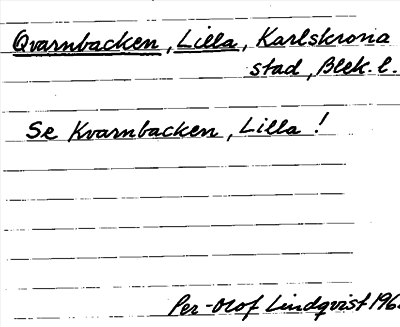 Qvarnbacken, Lilla, Karlskrona
stad, Blek. l.
Se Kvarnbacken, Lilla!
Per-Olof Lindqvist 196